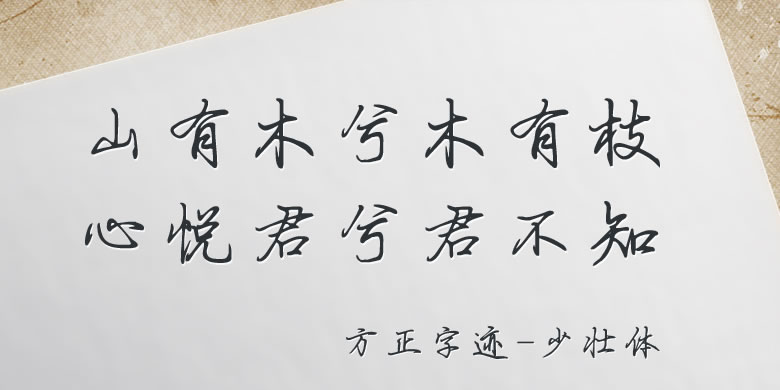 山有木兮木有枝
心悦君兮君不知
方正字迹-少壮体